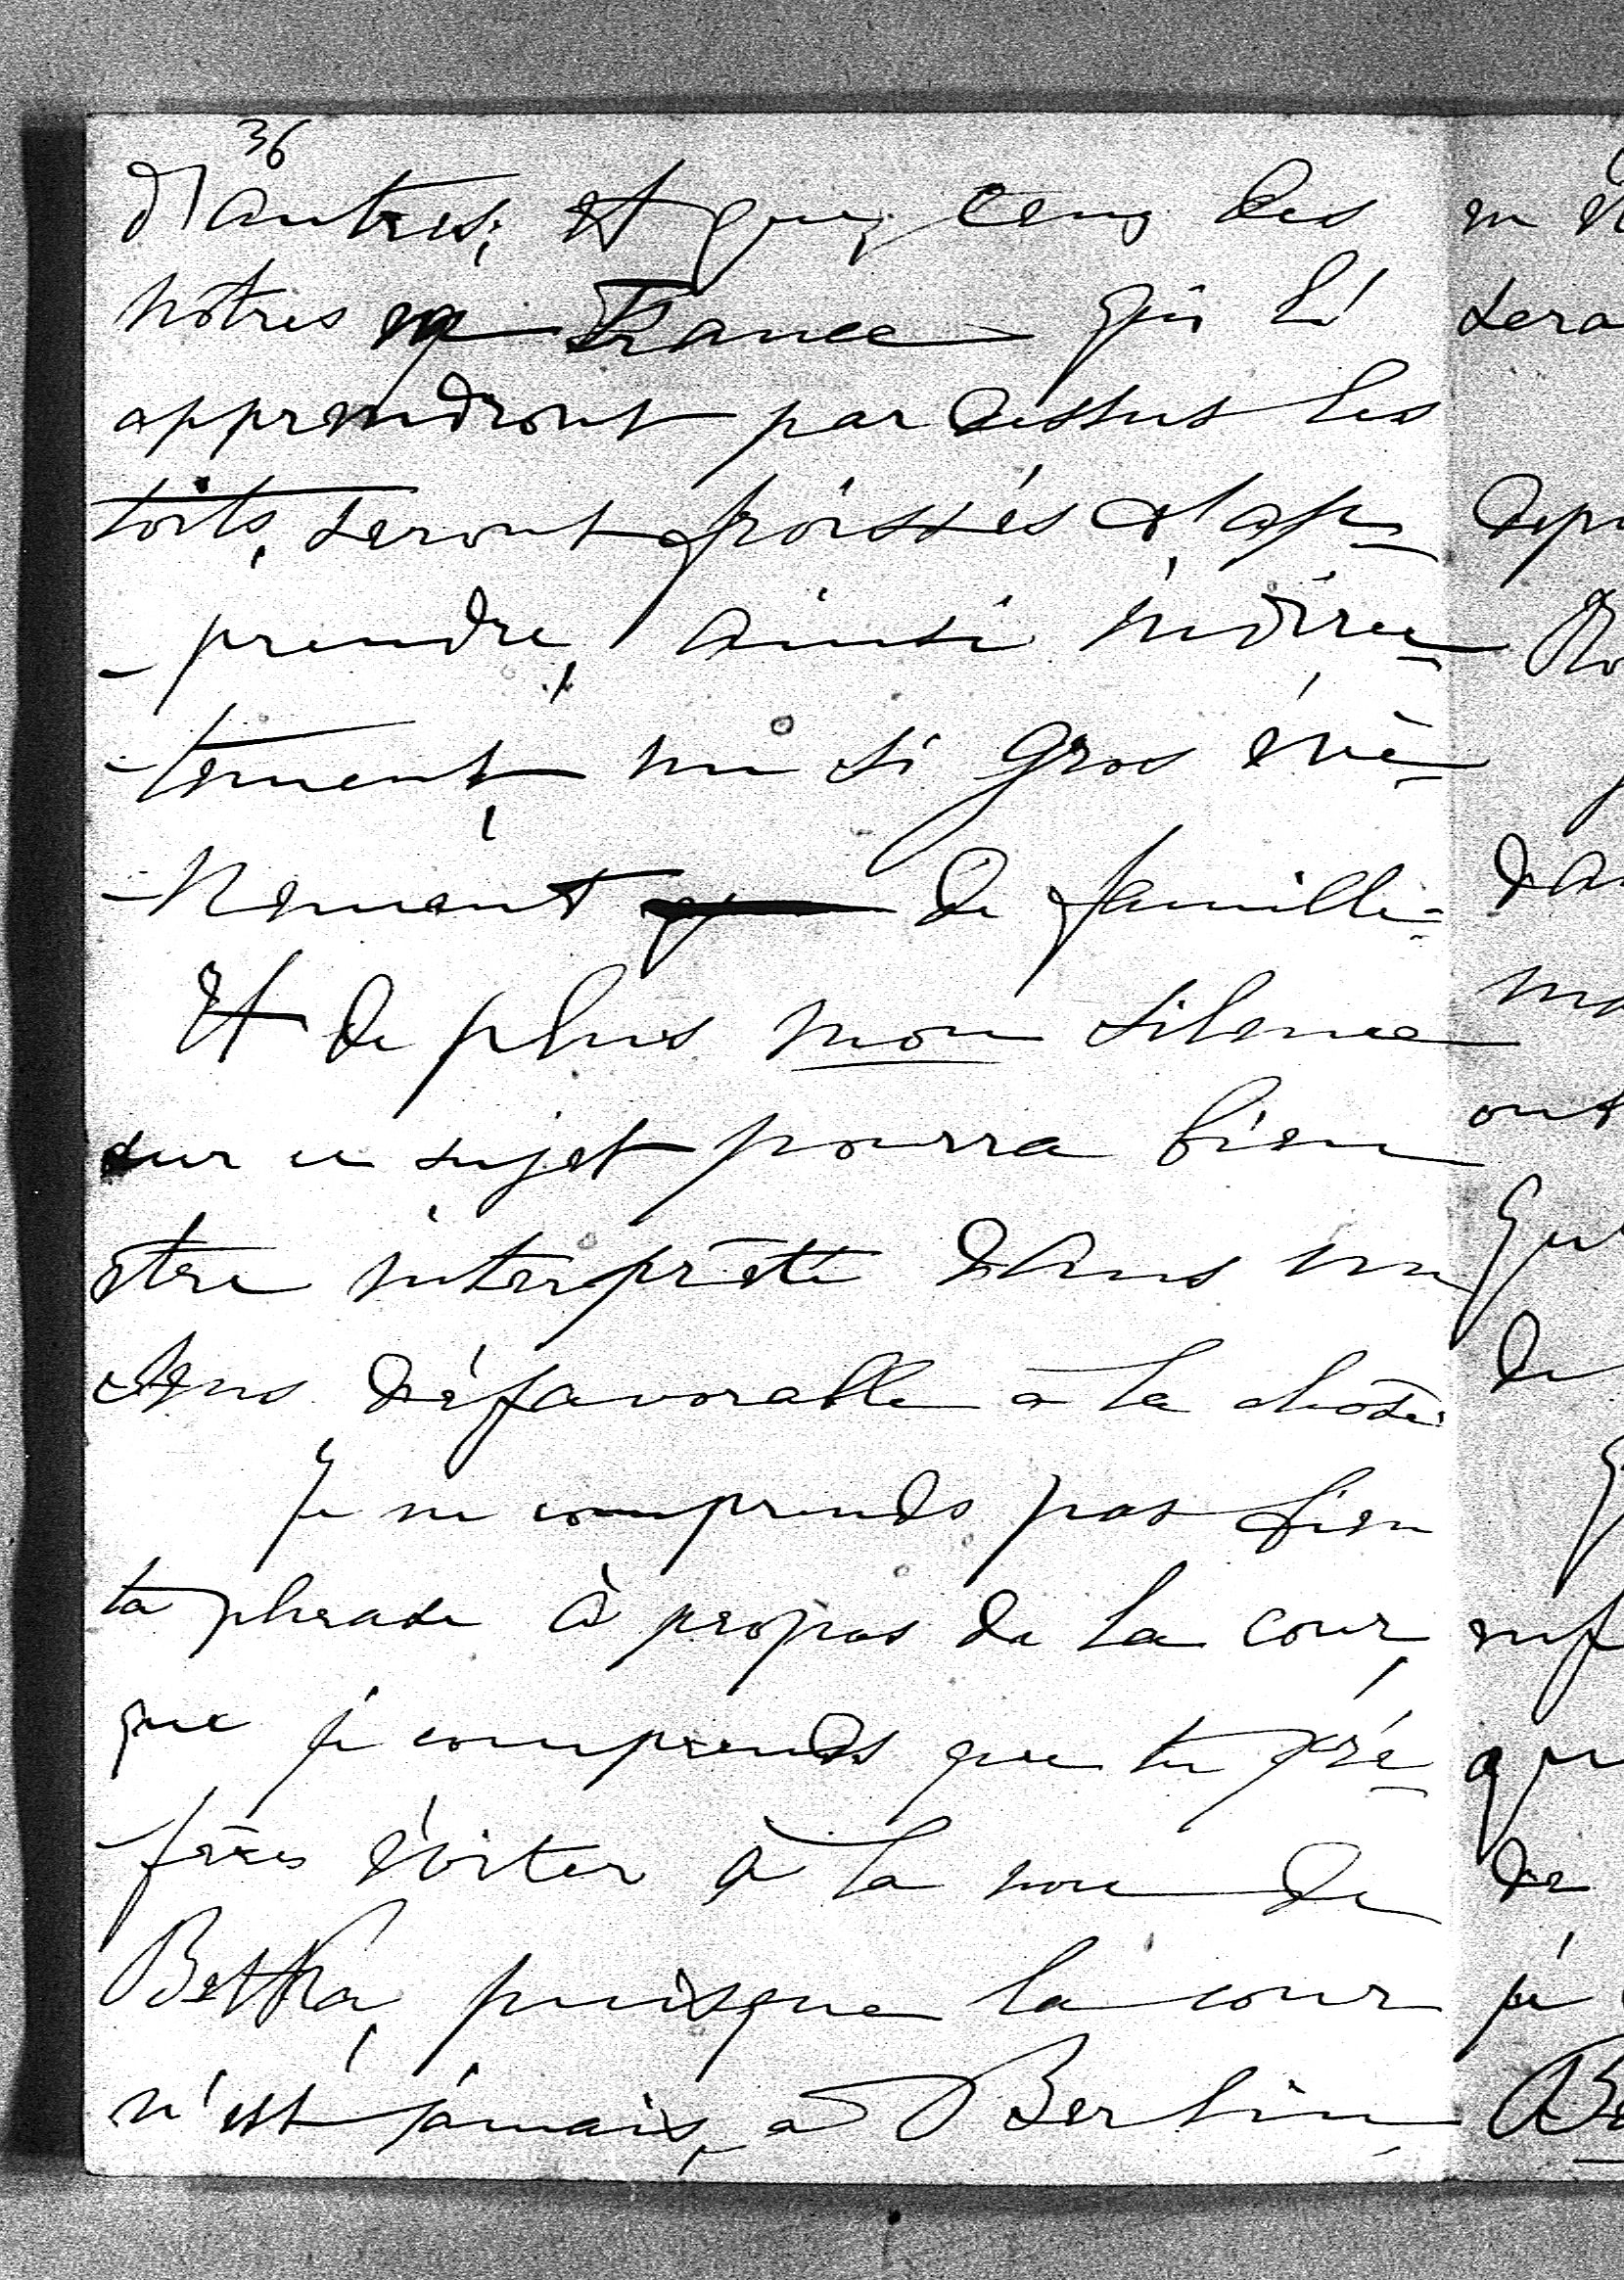 36
d'autres; et que, ceux des
nôtres en France qui l'
apprendront par dessus les
toits, seront froissés d'ap-
-prendre, ainsi indirec-
-tement, un si gros évè-
-nement de famille.
Et de plus mon silence
sur ce sujet pourra bien
être interprété dans un
sens défavorable à la chose.
Je ne comprends pas bien
ta phrase à propos de la cour,
que je comprends que tu pré-
-fères éviter à la noce de
Betka, puisque la cour
n'est jamais, à Berlin,